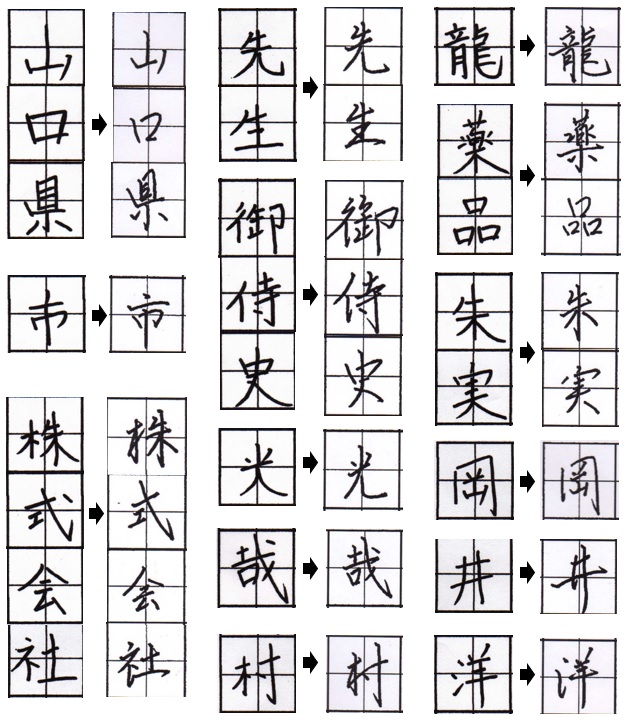 山口県
山口県
市
市
株式会社
株式会社
先生
先生
御侍史
御侍史
光
光
哉
哉
村
村
龍
龍
薬品
薬品
朱実
朱実
岡
岡
井
井
洋
洋